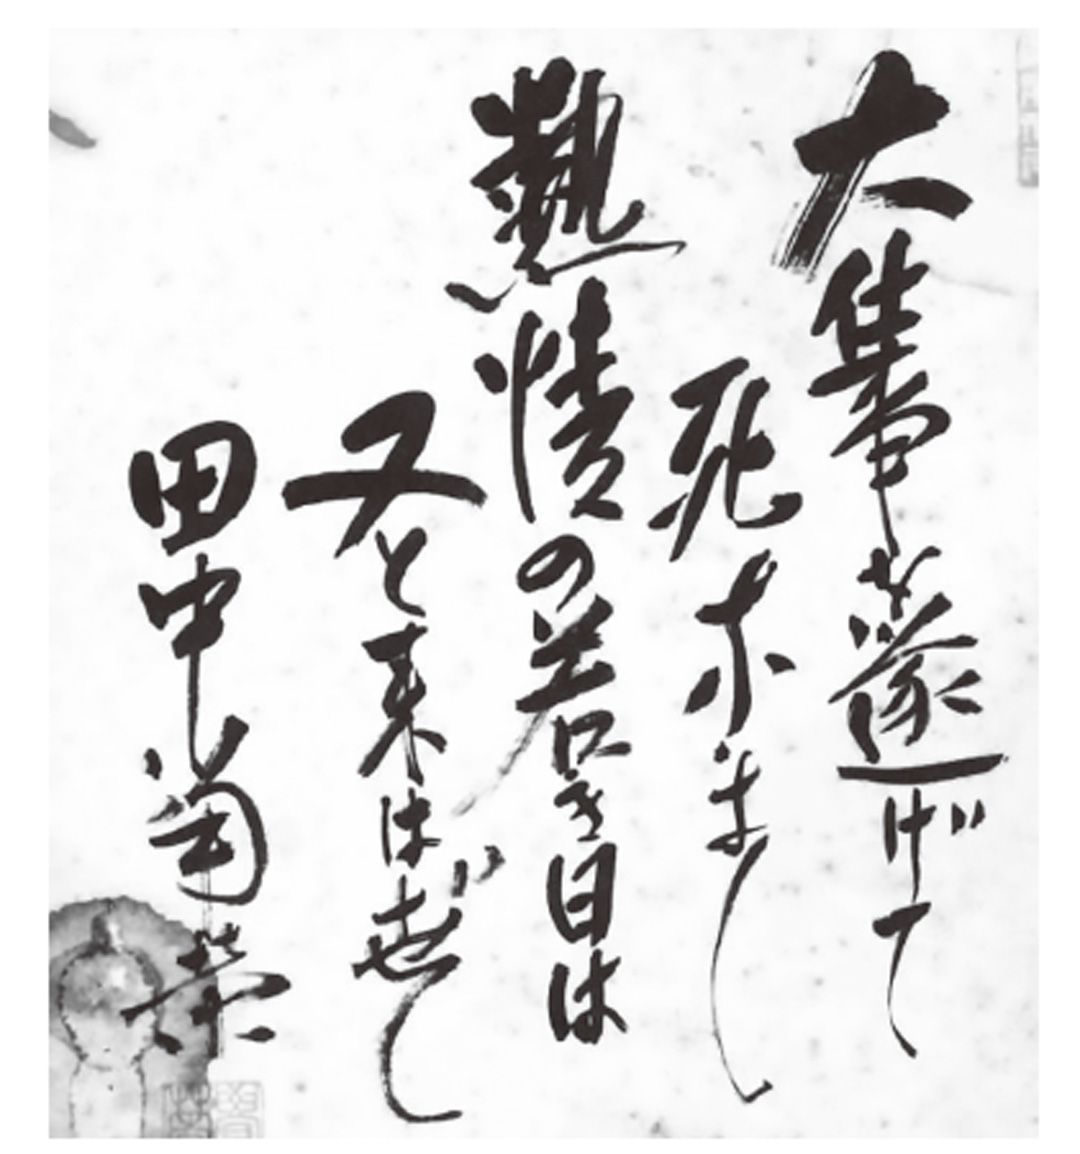 大集を遂げて
死なまし
熱情の若き日は
又と来はせじ
田中菊